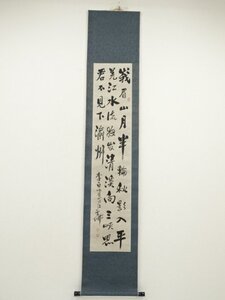 峩眉山月半輪秋影入平
羌江水流夜發清溪向三峽思
君不見下渝州
李白